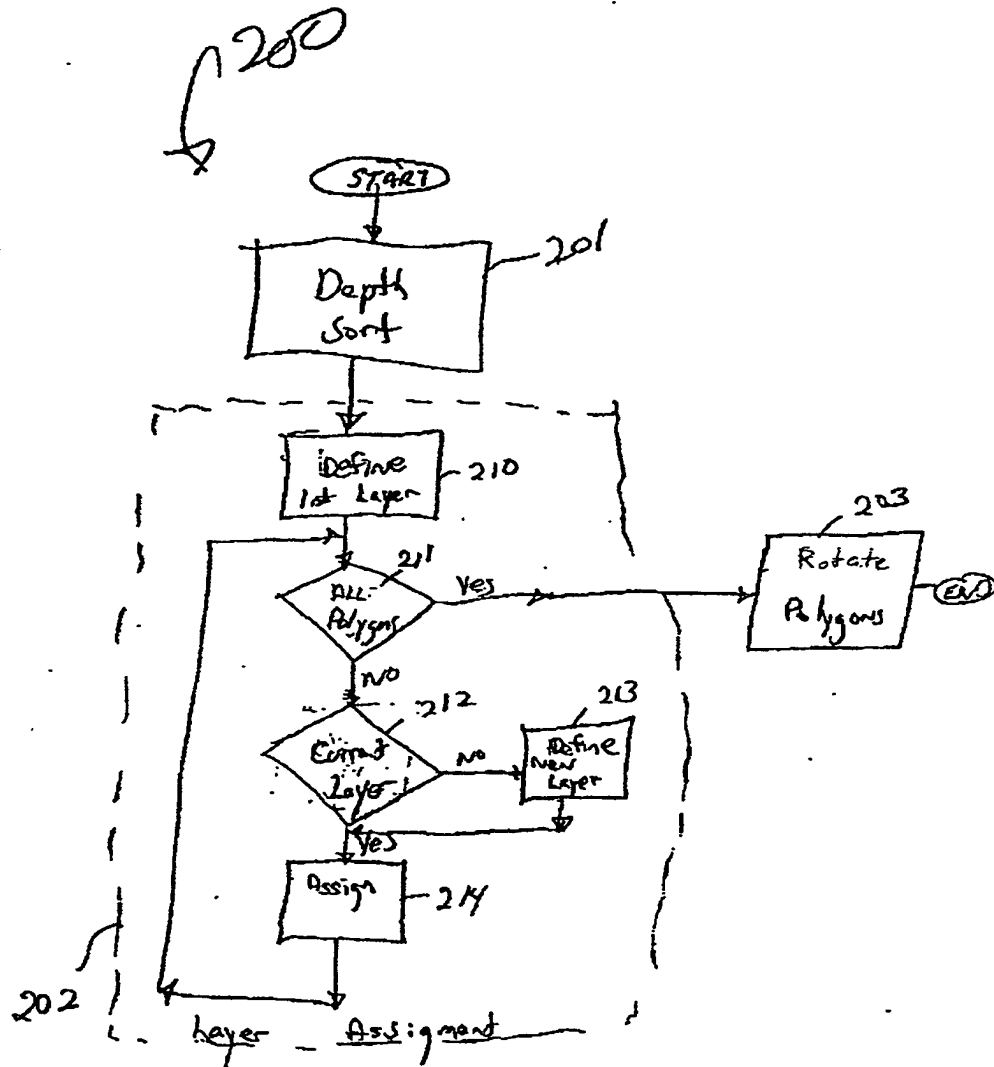 200
START
201
Depth
Sort
Define
1st Layer
210
203
Rotate
Polygons
END
211
ALL
Polygons
Yes
NO
212
Current
Layer
NO
213
Define
New
Layer
Yes
Assign
214
202
Layer Assigment